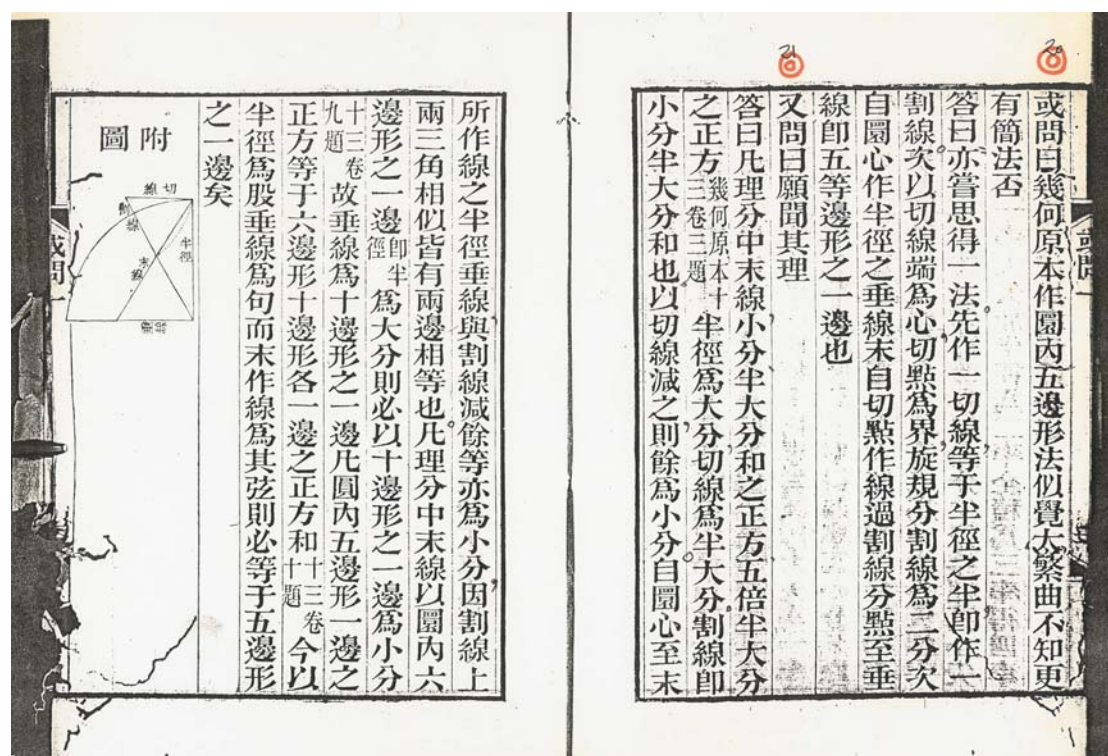 20
或問曰幾何原本作圜內五邊形法似覺太繁曲不知更
有簡法否
答曰亦嘗思得一法先作一切線等于半徑之半卽作一
割線次以切線端爲心切點爲界旋規分割線爲二分次
自圜心作半徑之垂線末自切點作線過割線分點至垂
線卽五等邊形之一邊也
21
又問曰願聞其理
答曰凡理分中末線小分半大分和之正方五倍半大分
之正方幾何原本十三卷三題半徑爲大分切線爲半大分割線卽
小分半大分和也以切線減之則餘爲小分自圜心至末
或問一
所作線之半徑垂線與割線減餘等亦爲小分因割線上
兩三角相似皆有兩邊相等也凡理分中末線以圜內六
邊形之一邊卽半徑爲大分則必以十邊形之一邊爲小分
十三卷九題故垂線爲十邊形之一邊凡圓內五邊形一邊之
正方等于六邊形十邊形各一邊之正方和十三卷十題今以
半徑爲股垂線爲句而末作線爲其弦則必等于五邊形
之一邊矣
附圖
切線
割線
半徑
末線
垂線
或問一